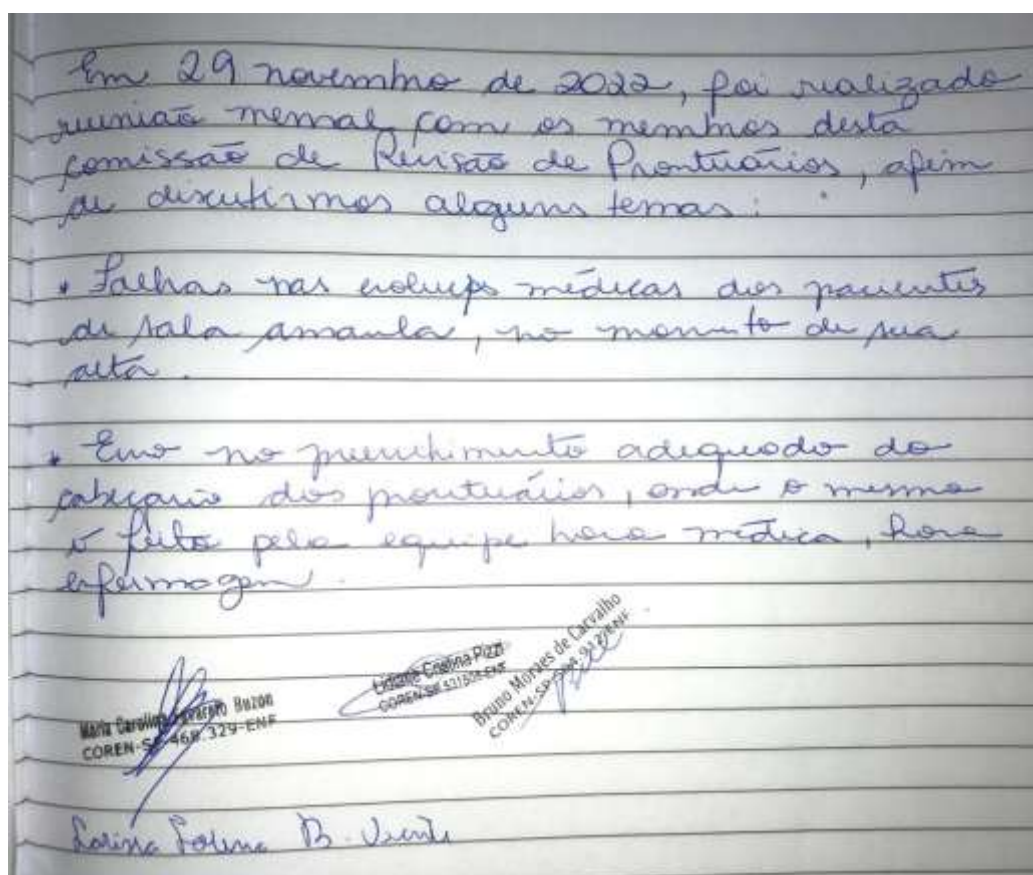 Em 29 novembro de 2022, foi realizado
reunião mensal com os membros desta
comissão de Revisão de Prontuários, afim
de discutirmos alguns temas:
• Falhas nas evoluções médicas dos pacientes
de sala amarela, no momento de sua
alta.
• Erro no preenchimento adequado do
cabeçario dos prontuários, onde o mesmo
é feito pela equipe hora médica, hora
enfermagem.
Maria Carolina Buzon
COREN-SP 468.329-ENF
Pizzi
COREN-SP
Bruno Moraes de Carvalho
COREN-SP
Larissa B. Vicente